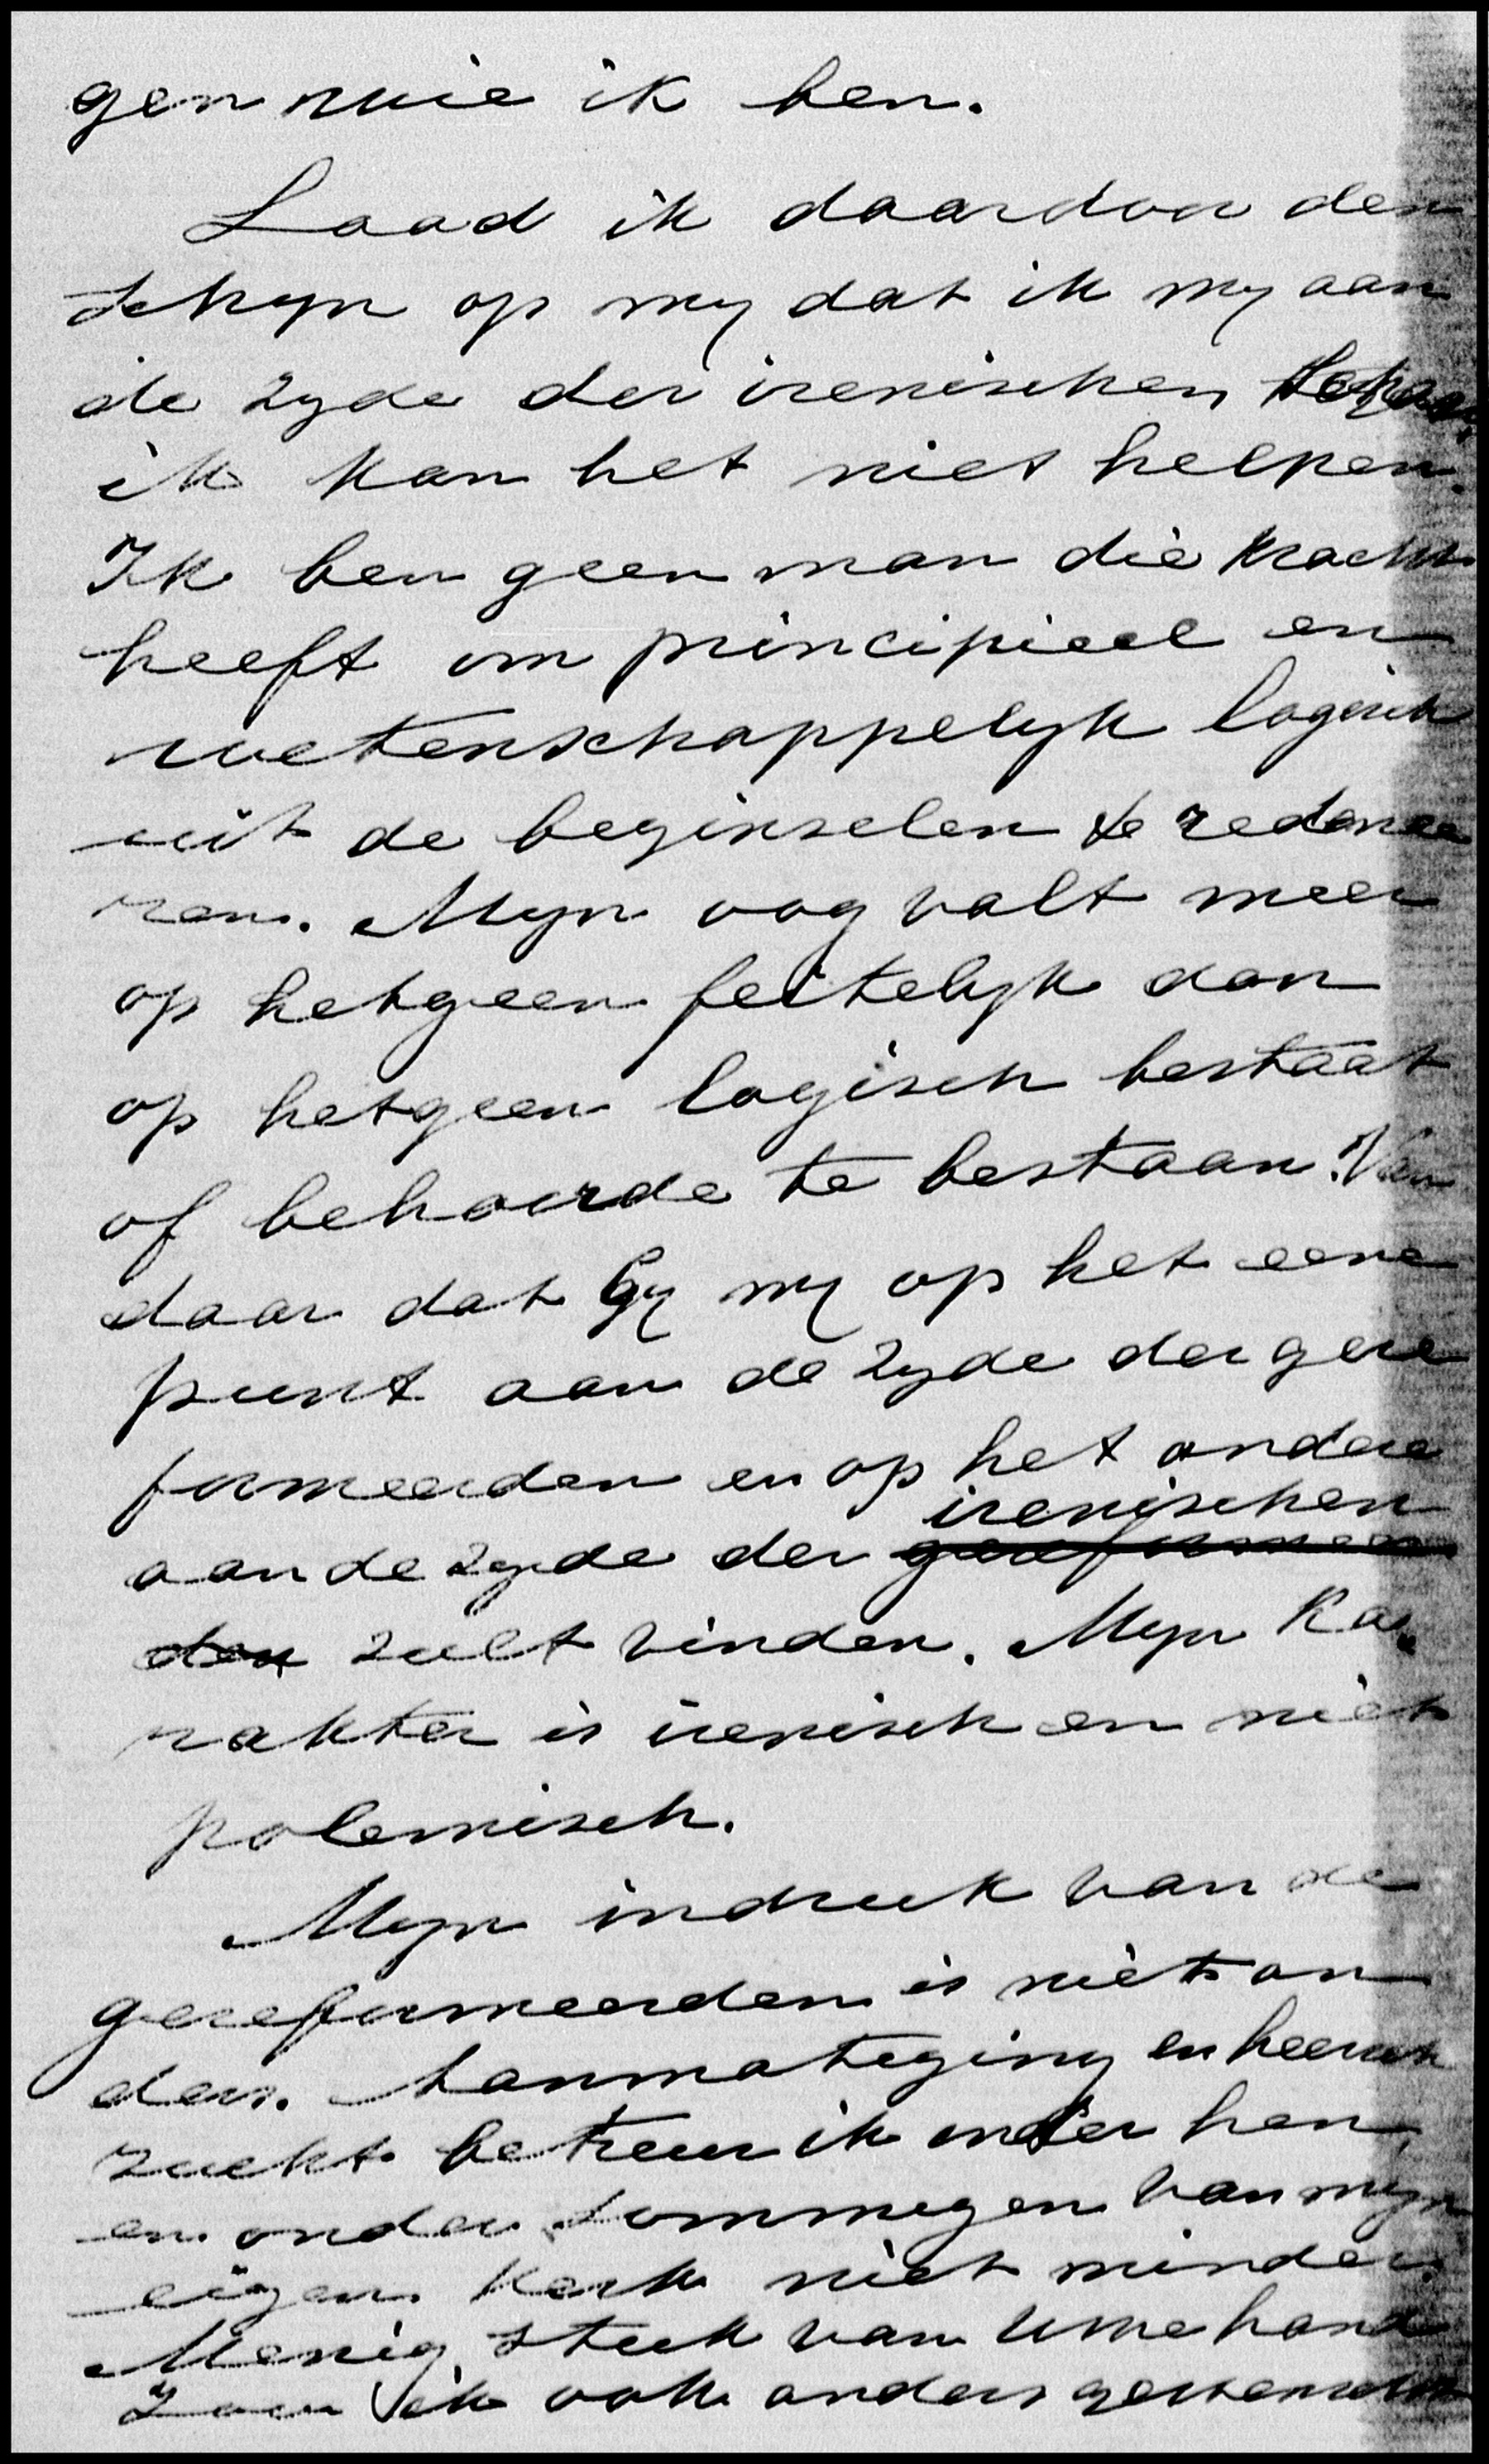 gen wie ik ben.
Laad ik daardoor den
schyn op my dat ik my aan
de zyde der irenischen
ik kan het niet helpen.
Ik ben geen man die kracht
heeft om principieel en
wetenschappelyk logisch
uit de beginselen te redenee
ren. Myn oog valt meer
op hetgeen feitelyk dan
op hetgeen logisch bestaat
of behoorde te bestaan. Van
daar dat Gy my op het eene
punt aan de zyde der gere
formeerden en op het andere
irenischen
aan de zyde der gereformeer
den zult vinden. Myn Ka-
rakter is irenisch en niet
polemisch.
Myn indruk van de
gereformeerden is niet an
ders. Aanmatiging en heersch
zucht betreur ik onder hen,
en onder sommigen van myn
eigen Kerk niet minder.
Menig stuk van Uwe hand
zou ik ook anders gewenscht